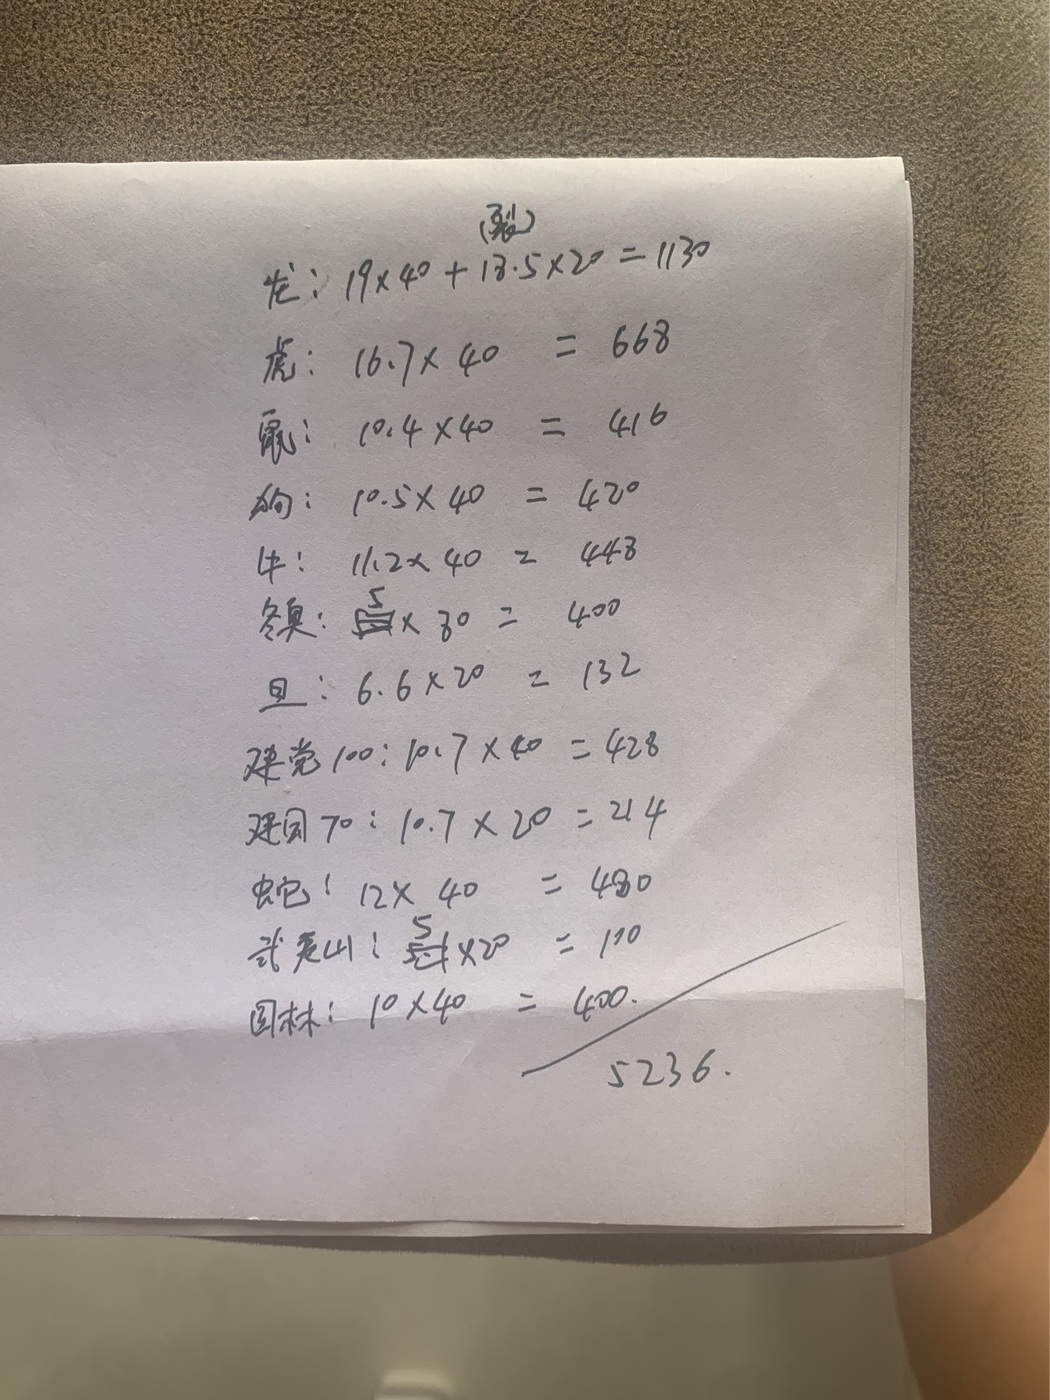 (裂)
龙: 19×40 + 18.5×20 = 1130
虎: 16.7×40 = 668
鼠: 10.4×40 = 416
狗: 10.5×40 = 420
牛: 11.2×40 = 448
冬奥: 5×80 = 400
旦: 6.6×20 = 132
建党100: 10.7×40 = 428
建国70: 10.7×20 = 214
蛇: 12×40 = 480
武夷山: 5×20 = 100
园林: 10×40 = 400.
5236.